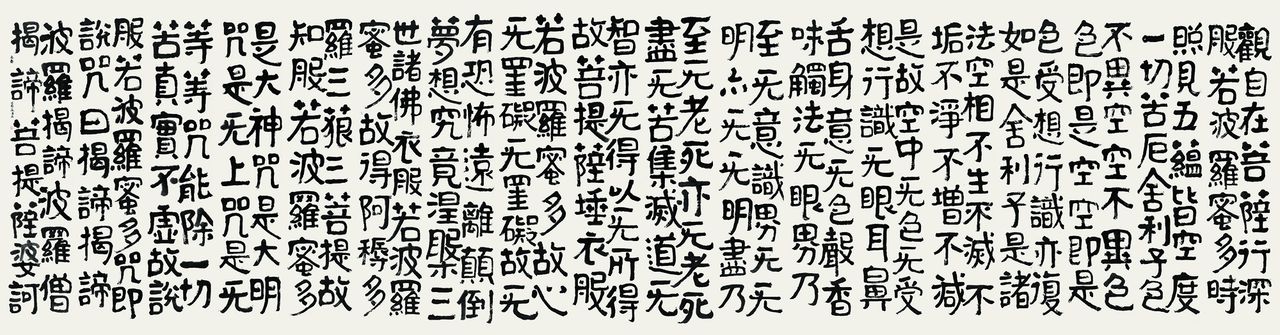 觀自在菩薩行深
服若波羅蜜多時
照見五蘊皆空度
一切苦厄舍利子色
不異空空不異色
色即是空空即是
色受想行識亦復
如是舍利子是諸
法空相不生不滅不
垢不淨不增不減
是故空中无色无受
想行識无眼耳鼻
舌身意无色聲香
味觸法无眼界乃
至无意識界无无
明亦无无明盡乃
至无老死亦无老死
盡无苦集滅道无
智亦无得以无所得
故菩提薩埵衣服
若波羅蜜多故心
无罣礙无罣礙故无
有恐怖遠離顛倒
夢想究竟涅槃三
世諸佛衣服若波羅
蜜多故得阿耨多
羅三藐三菩提故
知服若波羅蜜多
是大神咒是大明
咒是无上咒是无
等等咒能除一切
苦真實不虛故說
服若波羅蜜多咒即
說咒曰揭諦揭諦
波羅揭諦波羅僧
揭諦菩提薩婆訶